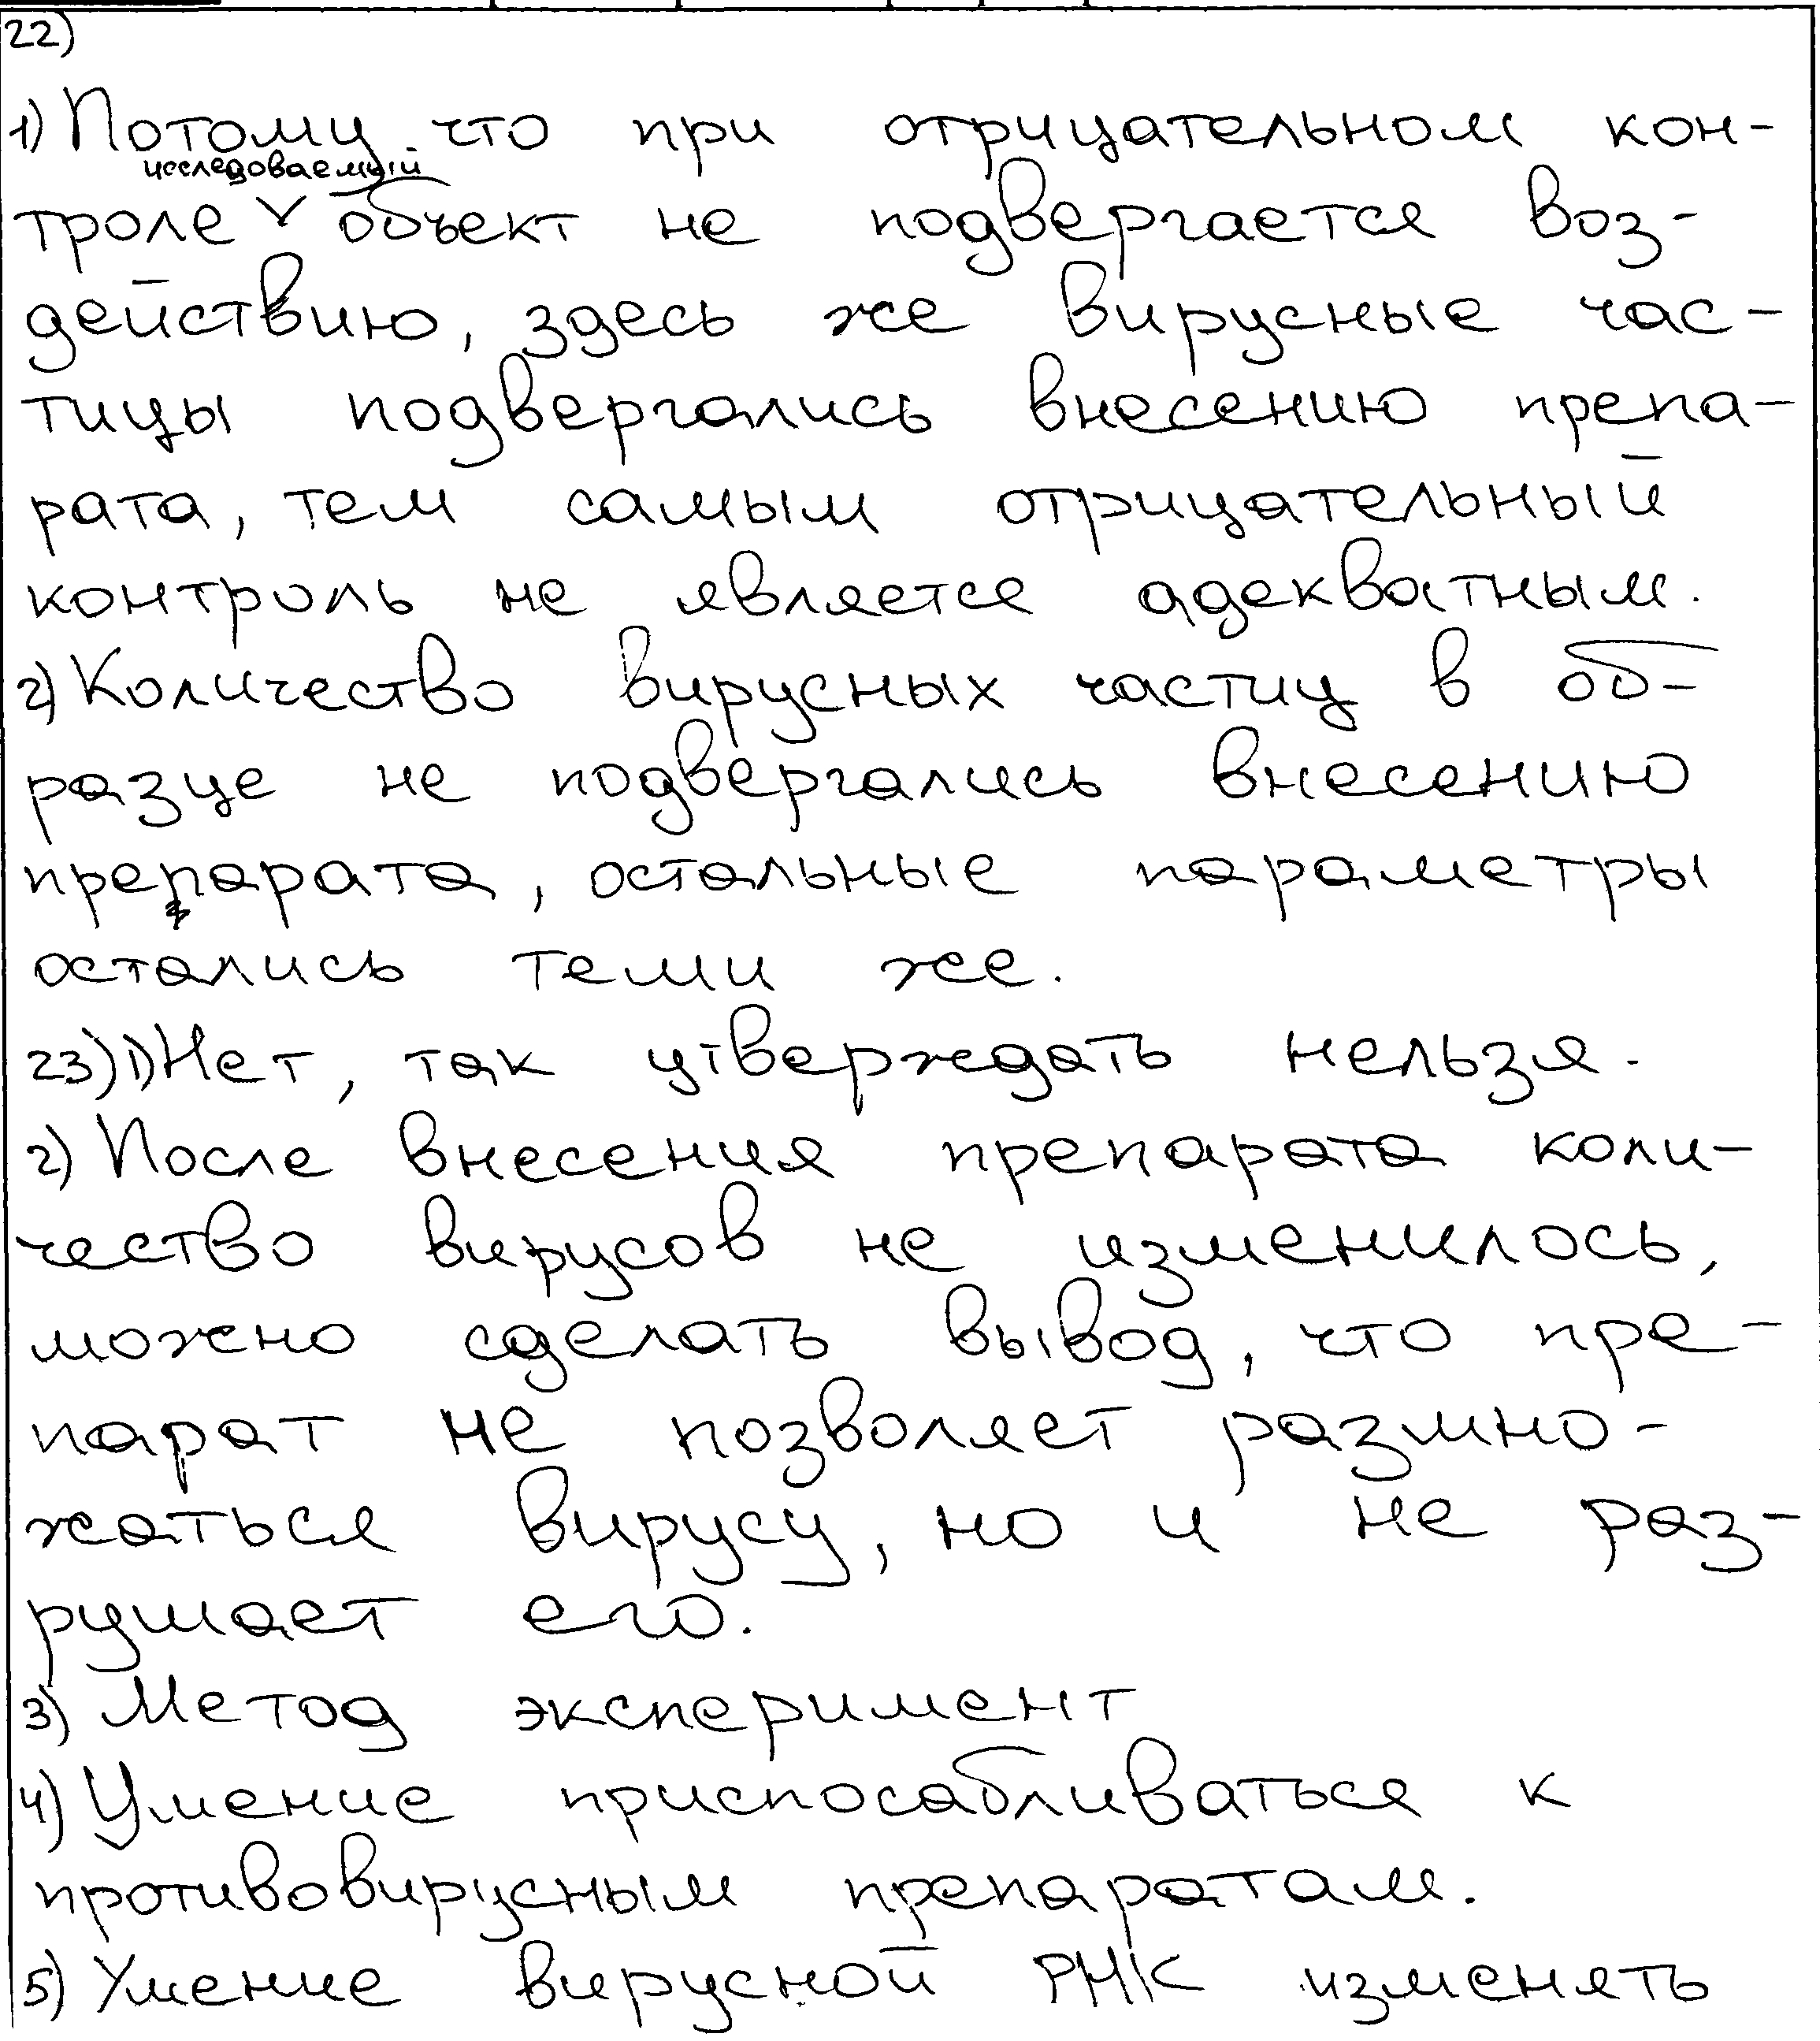 22)
1) Потому что при отрицательном кон-
исследоваемый
троле V объект не подвергается воз-
действию, здесь же вирусные час-
тицы подвергались внесению препа-
рата, тем самым отрицательный
контроль не является адекватным.
2) Количество вирусных частиц в об-
разце не подвергались внесению
препарата, остальные параметры
остались теми же.
23) 1) Нет, так утверждать нельзя.
2) После внесения препарата коли-
чество вирусов не изменилось,
можно сделать вывод, что пре-
парат не позволяет размно-
жаться вирусу, но и не раз-
рушает его.
3) Метод эксперимент
4) Умение приспосабливаться к
противовирусным препаратам.
5) Умение вирусной РНК изменять